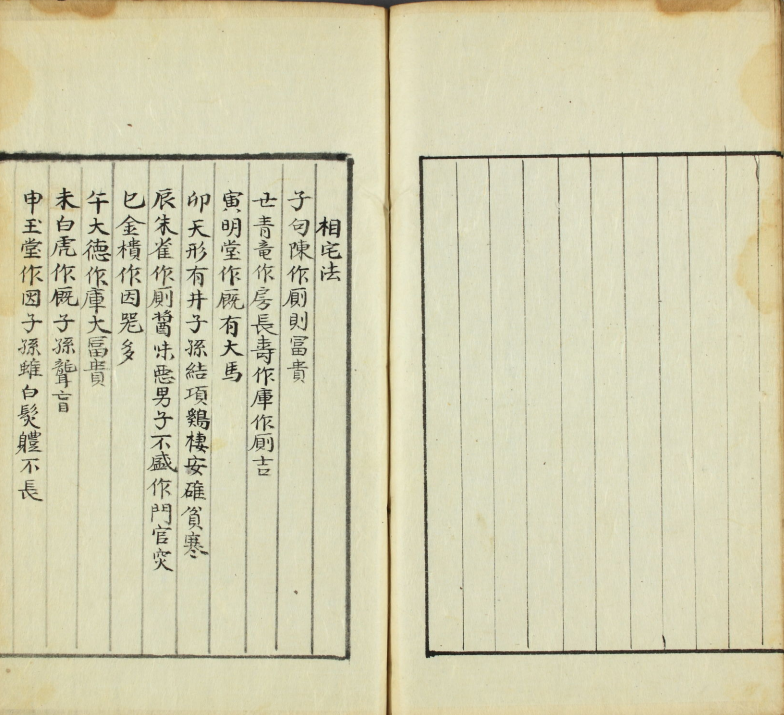 相宅法
子句陳作厠則冨貴
丑青竜作房長壽作庫作厠吉
寅明堂作厩有大馬
卯天形有井子孫結項鷄棲安碓貧寒
辰朱雀作厠醬味悪男子不盛作門官灾
巳金樻作因咒多
午大德作庫大冨貴
未白虎作厩子孫聾盲
申玉堂作因子孫雖白髮軆不長